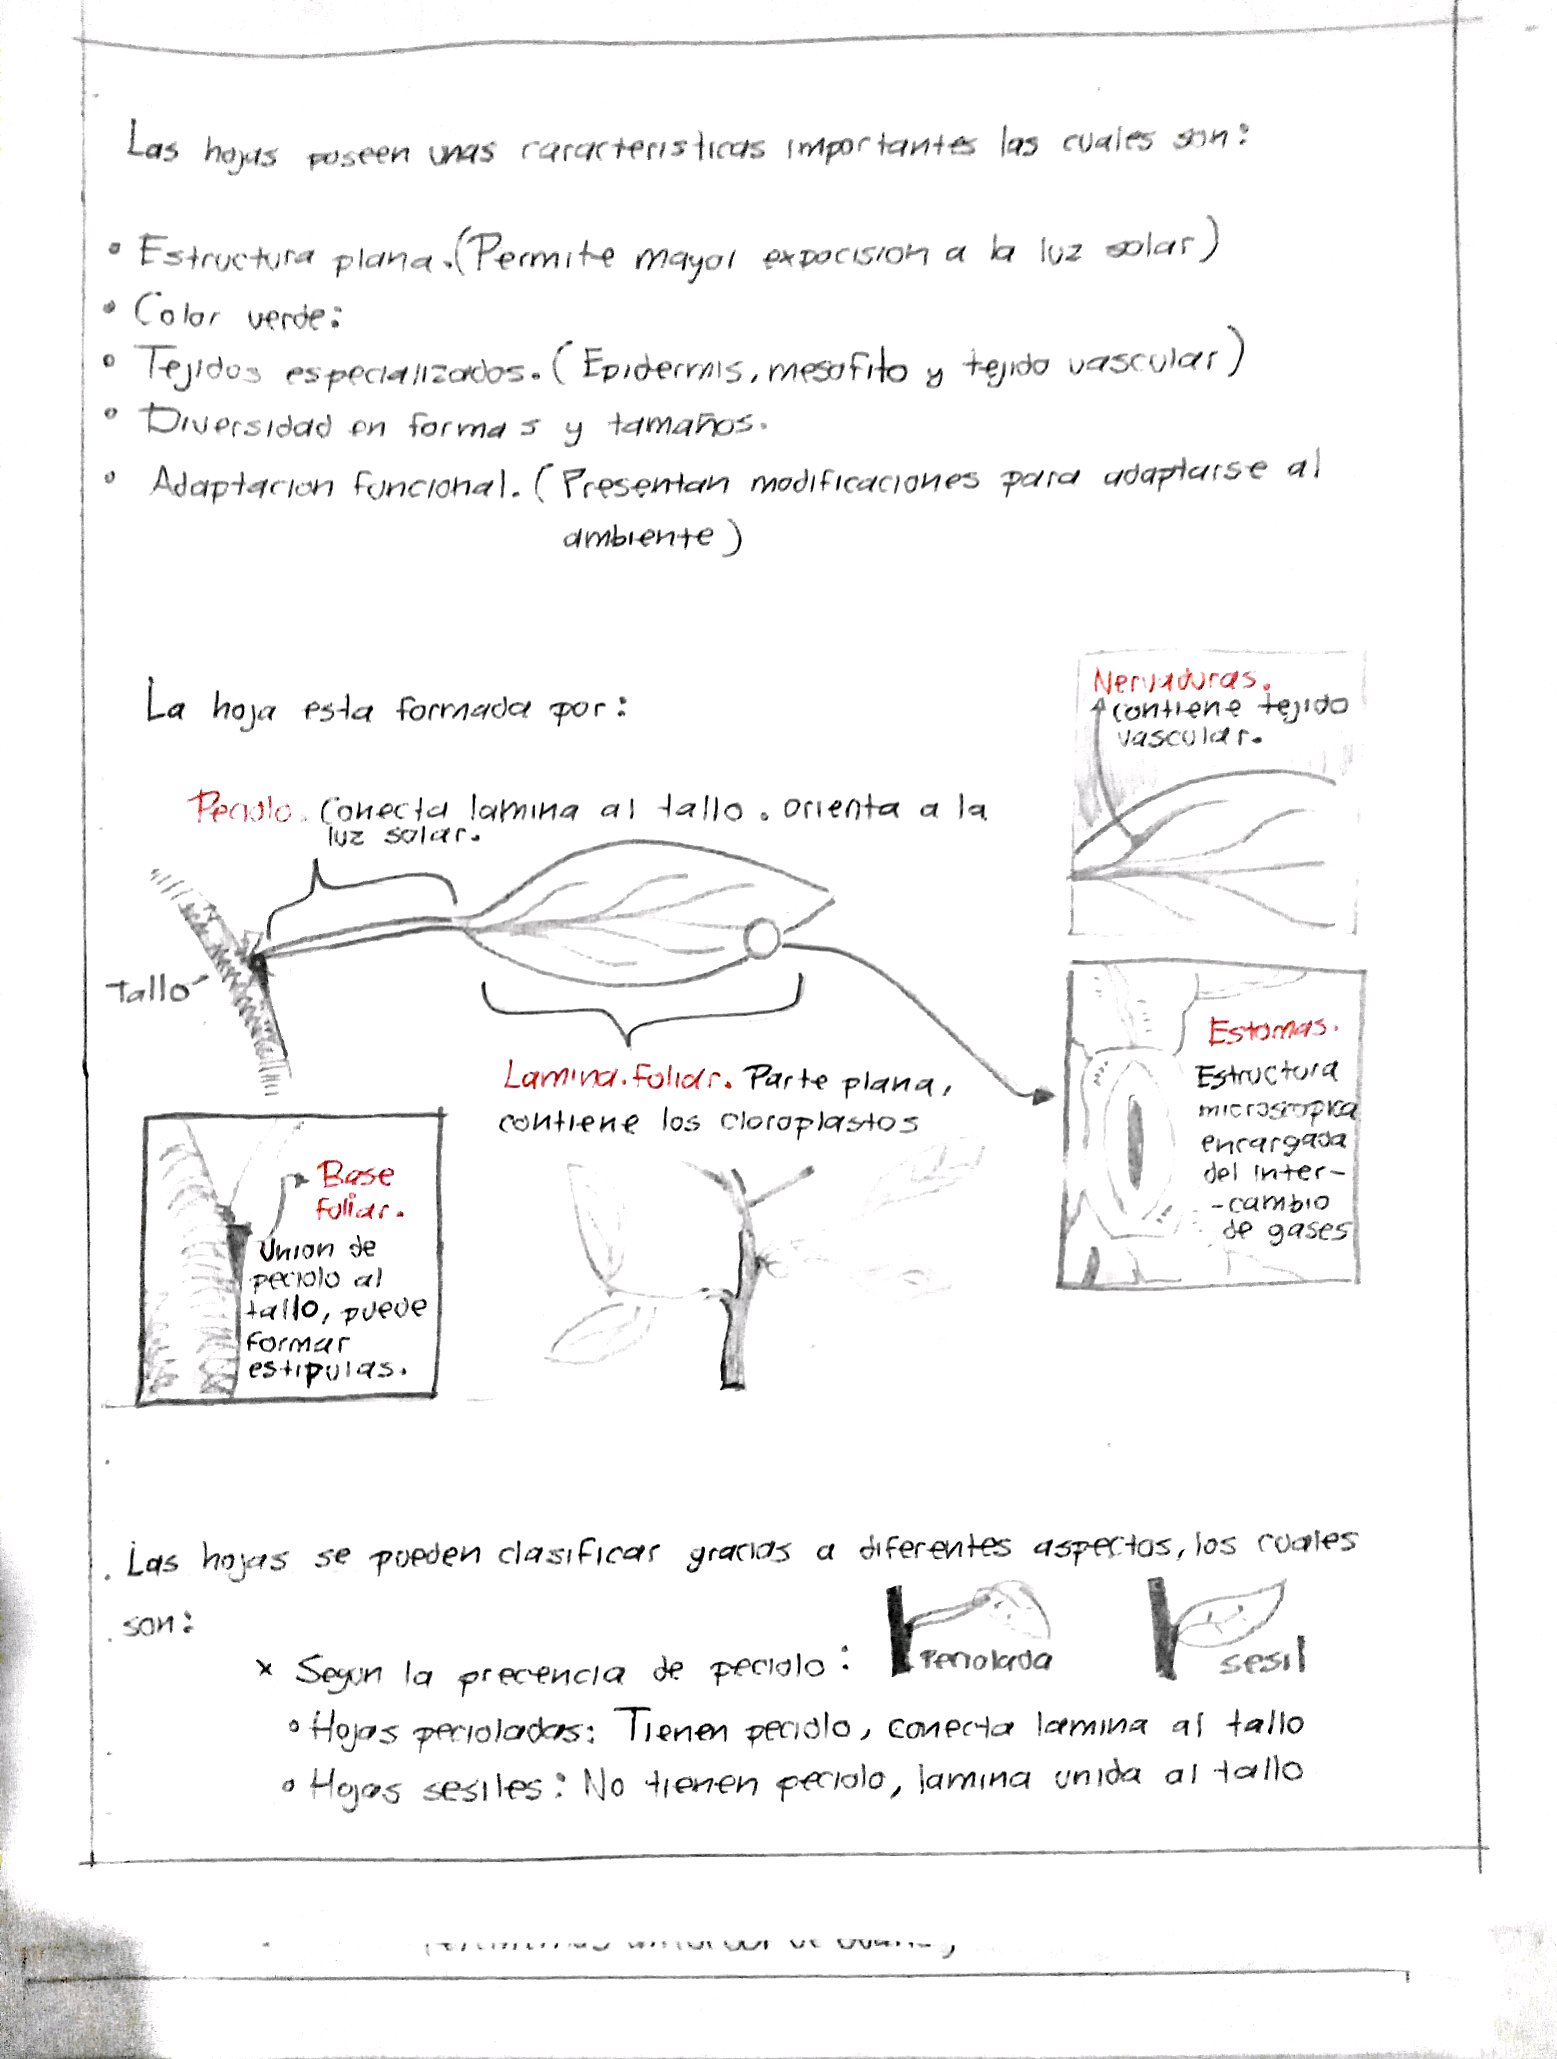 Las hojas poseen unas caracteristicas importantes las cuales son:
• Estructura plana. (Permite mayor expocision a la luz solar)
• Color verde:
• Tejidos especializados. (Epidermis, mesofito y tejido vascular)
• Diversidad en formas y tamaños.
• Adaptacion funcional. (Presentan modificaciones para adaptarse al
ambiente)
La hoja esta formada por:
Nervaduras.
contiene tejido
vascular.
Peciolo. Conecta lamina al tallo. orienta a la
luz solar.
tallo
Lamina.foliar. Parte plana,
contiene los cloroplastos
Estomas.
Estructura
microscopica
encargada
del inter-
-cambio
de gases
Base
foliar.
Union de
peciolo al
tallo, puede
formar
estipulas.
Las hojas se pueden clasificar gracias a diferentes aspectos, los cuales
son:
Peciolada
sesil
x Segun la precencia de peciolo:
• Hojas pecioladas: Tienen peciolo, conecta lamina al tallo
• Hojas sesiles: No tienen peciolo, lamina unida al tallo